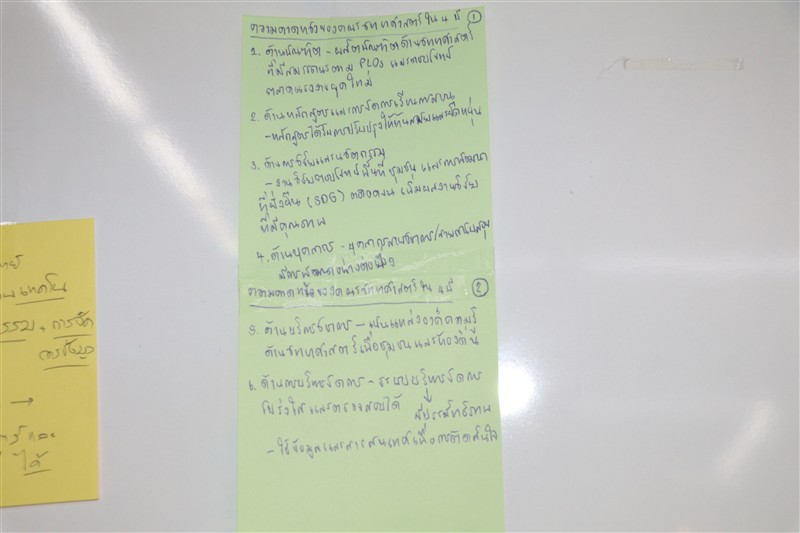 ความคาดหวังของคณะวิทยาศาสตร์ใน 4 ปี ①
1. ด้านบัณฑิต - ผลิตบัณฑิตด้านวิทยาศาสตร์
ที่มีสมรรถนะตาม PLOs และตอบโจทย์
ตลาดแรงงานยุคใหม่
2. ด้านหลักสูตรและการจัดการเรียนการสอน
- หลักสูตรได้รับการปรับปรุงให้ทันสมัยและยืดหยุ่น
3. ด้านการวิจัยและนวัตกรรม
- งานวิจัยตอบโจทย์พื้นที่ ชุมชน และการพัฒนา
ที่ยั่งยืน (SDG) ตลอดจน เพิ่มผลงานวิจัย
ที่มีคุณภาพ
4. ด้านบุคลากร - บุคลากรสายวิชาการ/สายสนับสนุน
มีการพัฒนาอย่างต่อเนื่อง
ความคาดหวังของคณะวิทยาศาสตร์ใน 4 ปี ②
5. ด้านบริการวิชาการ - เป็นแหล่งองค์ความรู้
ด้านวิทยาศาสตร์เพื่อชุมชนและท้องถิ่น
6. ด้านการบริหารจัดการ - ระบบบริหารจัดการ
โปร่งใสและตรวจสอบได้ มีประสิทธิภาพ
- ใช้ข้อมูลและสารสนเทศเพื่อการตัดสินใจ
การจัด
→
ได้